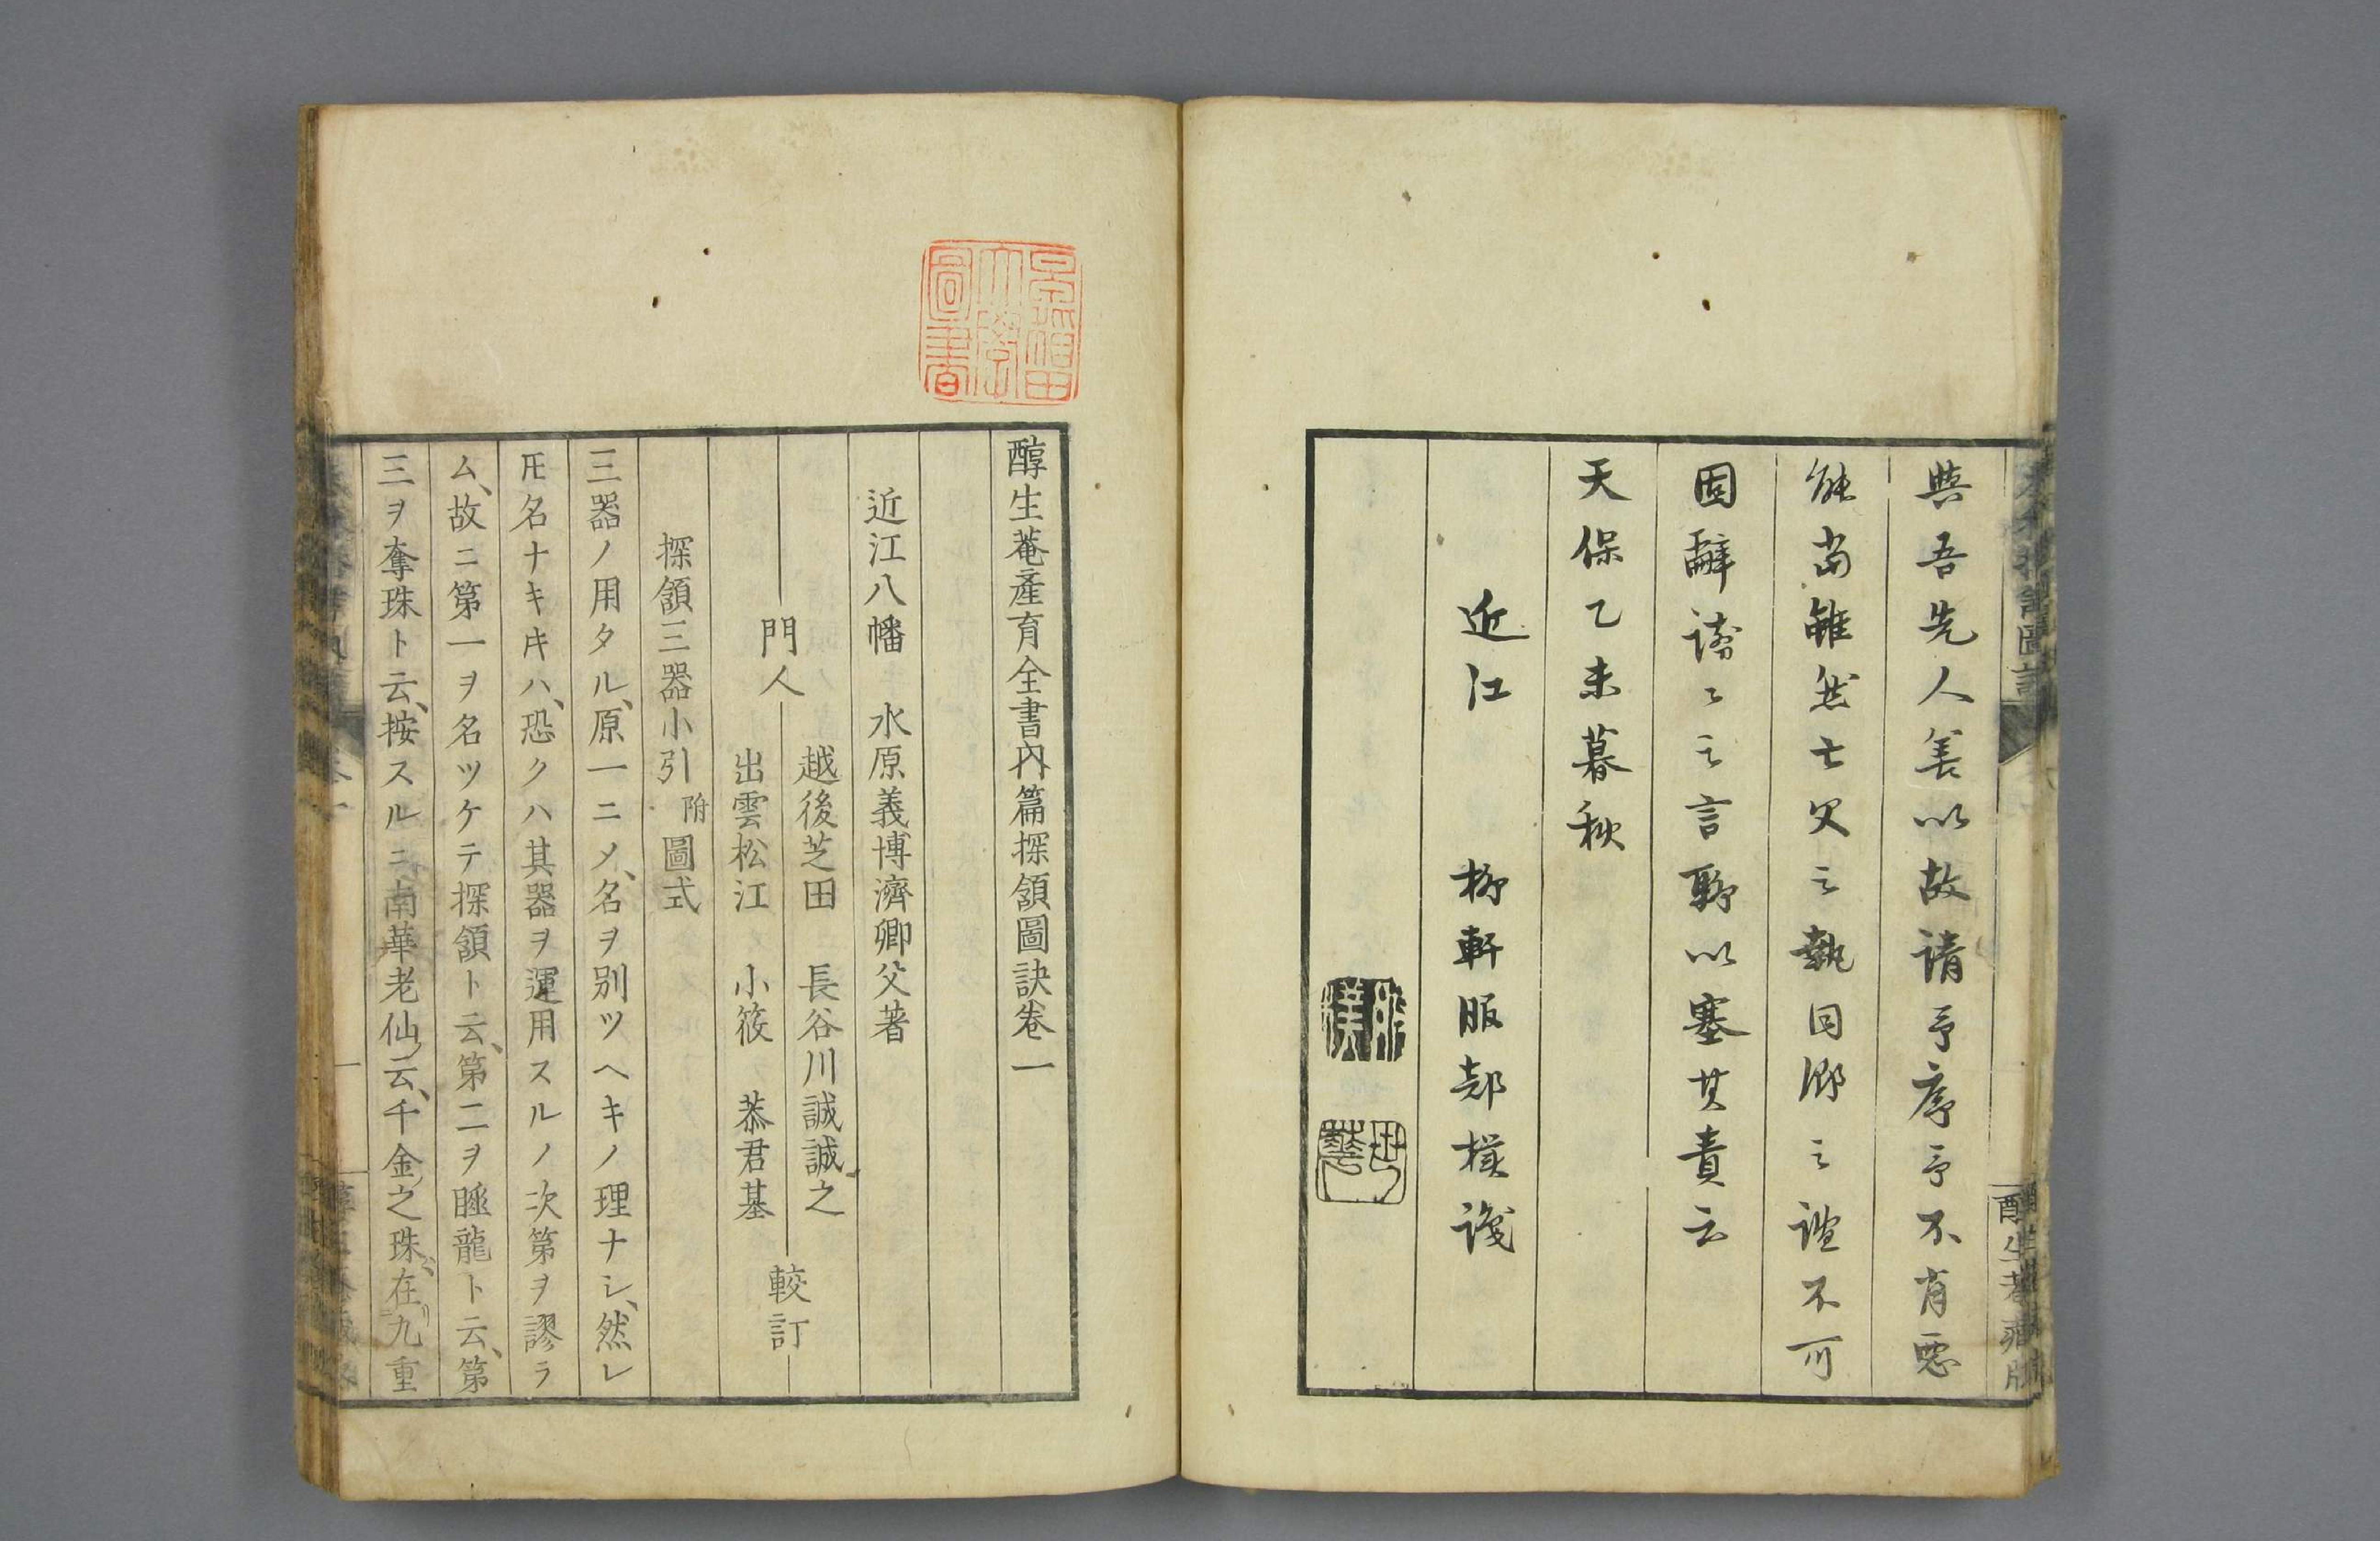 與吾先人善以故請予序予不肖惡
能當雖然亡父之執同鄉之誼不可
固辭諸〻之言聊以塞其責云
天保乙未暮秋
近江 柳軒服部樸識
醇生菴藏版
早稲田大學圖書
醇生菴產育全書內篇探頷圖訣卷一
近江八幡 水原義博濟卿父著
門人
越後芝田 長谷川誠誠之
出雲松江 小筱 恭君基
較訂
探頷三器小引 附圖式
三器ノ用タル、原一ニメ、名ヲ別ツヘキノ理ナシ、然レ
𪜈名ナキキハ、恐クハ其器ヲ運用スルノ次第ヲ謬ラ
ム、故ニ第一ヲ名ツケテ探頷ト云、第二ヲ睡龍ト云、第
三ヲ奪珠ト云、按スルニ南華老仙云、千金之珠、在九重